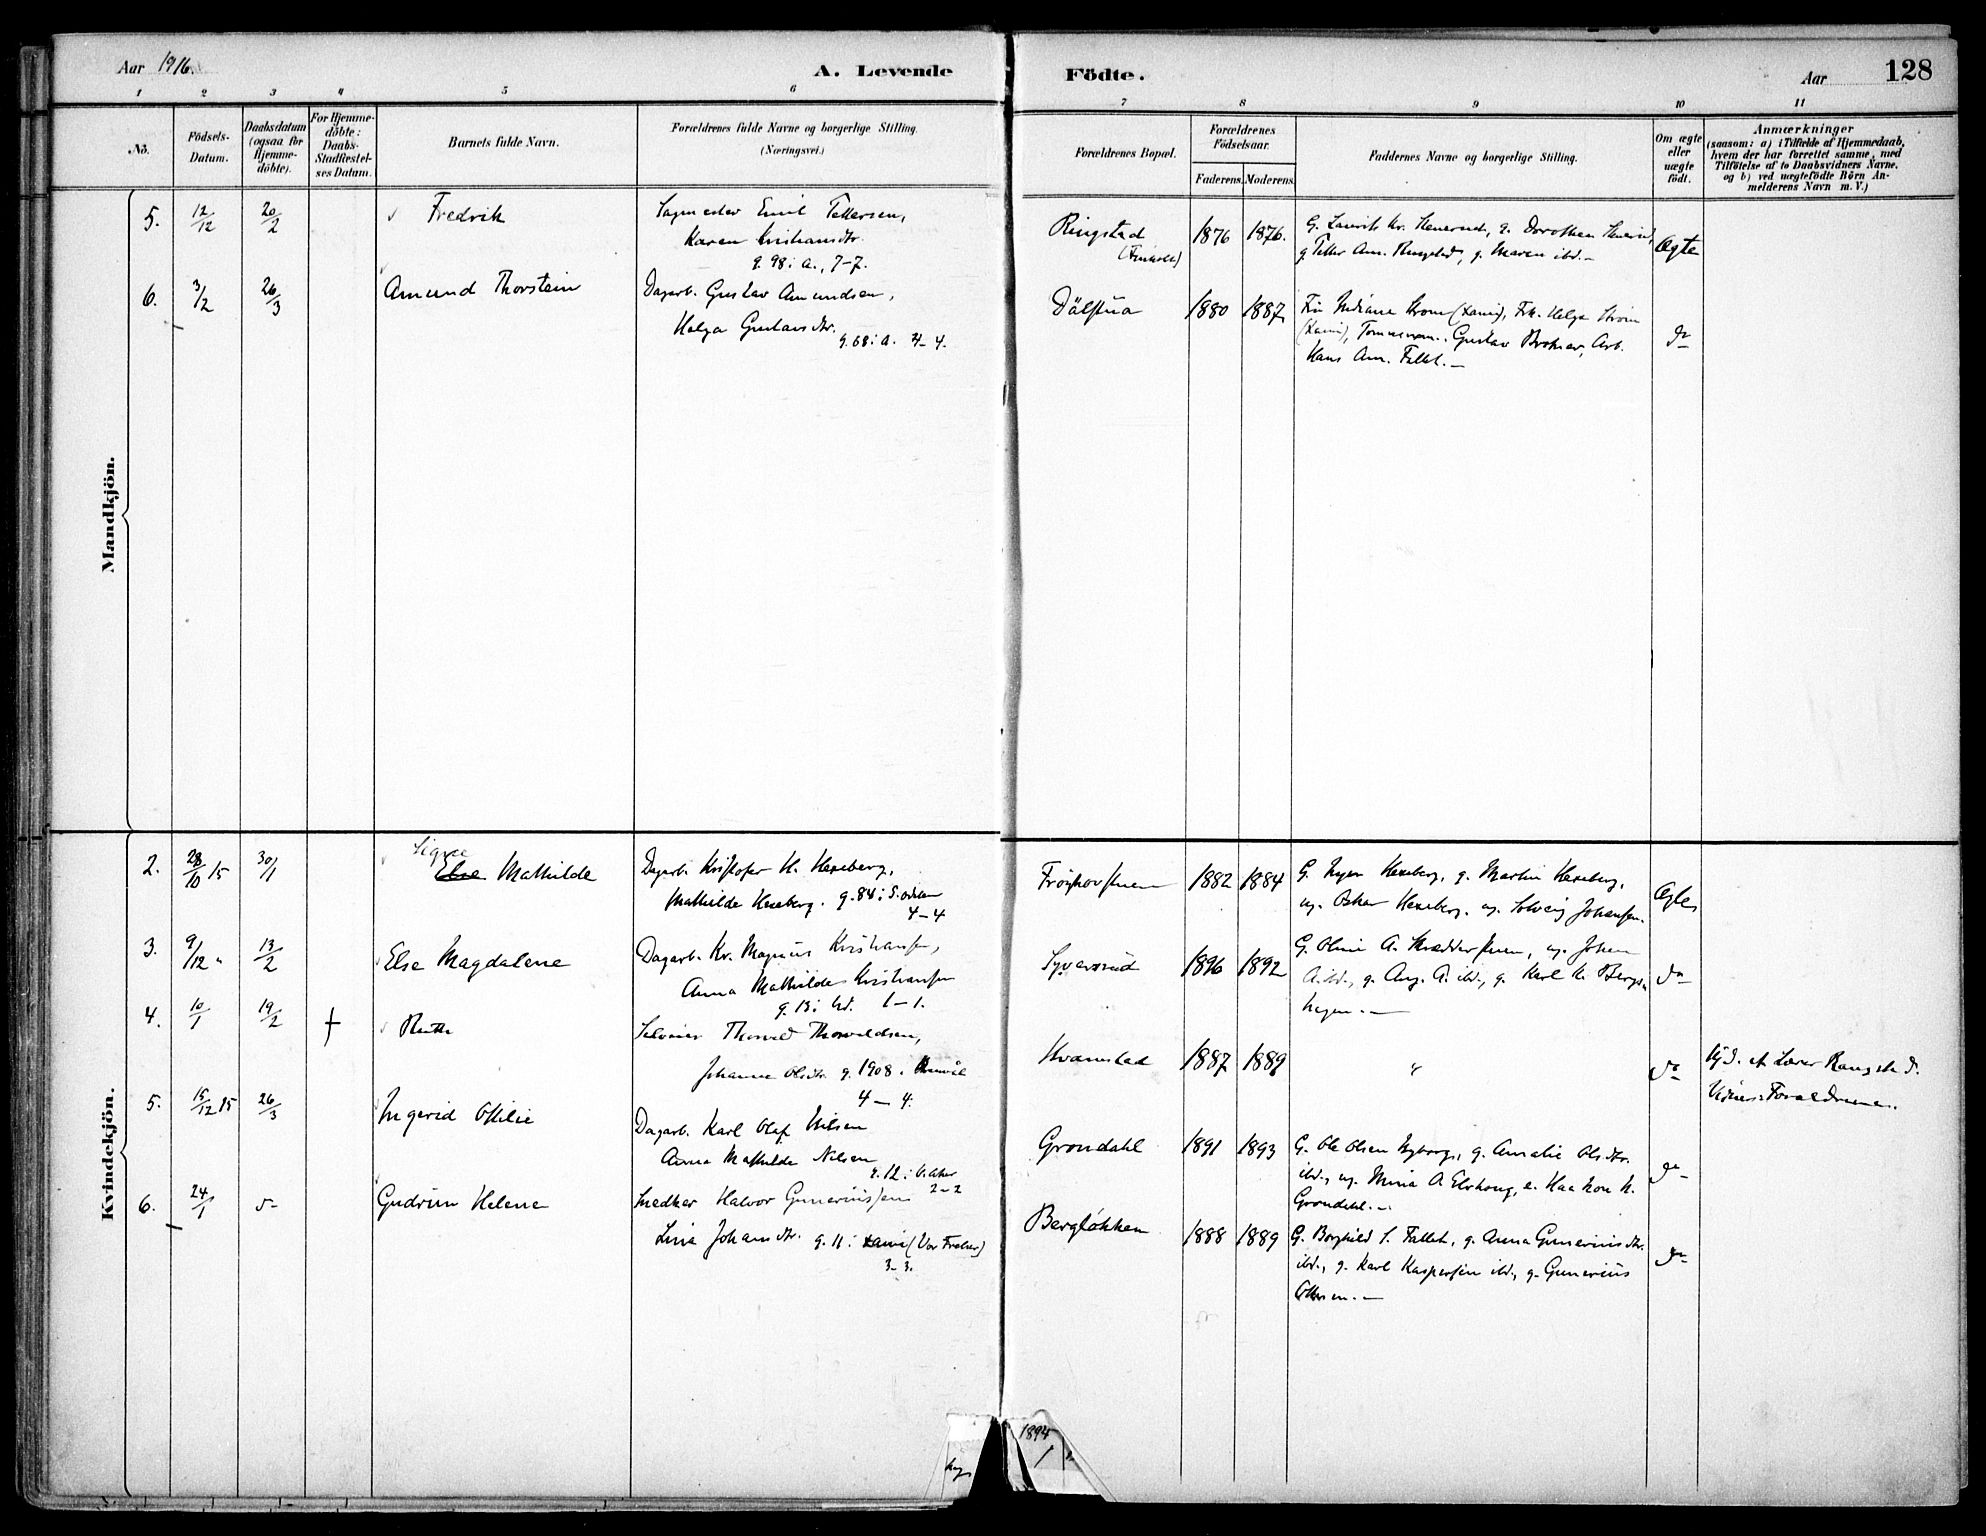 Aar 1916.
A. Levende Födte.
Aar 128
1 2 3 4 5 6 7 8 9 10 11
No.
Födsels-Datum.
Daabsdatum (ogsaa for Hjemme-döbte).
For Hjemme-döbte: Daabs-Stadfæstel-ses Datum.
Barnets fulde Navn.
Forældrenes fulde Navne og borgerlige Stilling.
(Næringsvei.)
Forældrenes Bopæl.
Forældrenes Födselsaar.
Faderens. Moderens.
Faddernes Navne og borgerlige Stilling.
Om ægte eller uægte født.
Anmærkninger
(saasom: a) i Tilfælde af Hjemmedaab,
hvem der har forrettet samme, med
Tilföielse af to Daabsvidners Navne.
og b) ved uægtefödte Börn An-
melderens Navn m. V.)
Mandkjön.
5. 12/12 20/2 Fredrik
Sagmester Emil Tellersen,
Karen Kristiansdtr.
g. 98 i A., 7-7.
Ringstad
1876 1876.
g. Dorothea
g. Teller Am. Ringstad, g. Maren ibd.-
Ægte
6. 3/2 26/3 Amund Thorstein
Dagarb. Gustav Amundsen,
Helga Gustavsdtr.
g. 08 i A. 4-4.
Dälstua
1880 1887
Frk. Helga Strøm
Gustav Arb.
Hans Am. Fallet.-
do
Kvindekjön.
2. 28/10 15 30/1 Signe Else Mathilde
Dagarb. Kristofer H. Hexeberg,
Mathilde Hexeberg. g. 84 i S. Odalen
4-4
1882 1884
G. Hexeberg, g. Martin Hexeberg,
ug. Oskar Hexeberg, ug. Solveig Johansen.
Ægte
3. 9/12 " 13/2 Else Magdalene
Dagarb. Kr. Magnus Kristiansen,
Anna Mathilde Kristiansen
g. 13 i 1-1.
Syversrud
1896 1892
G. Oline A. ug. Johan
A. ibd., g. Aug. A. ibd., g. Karl K. Bergs-
hagen.-
do
4. 10/1 19/2 + Ruth
Thorvald Thorvaldsen,
Johanne Olsdtr. g. 1908 i
4-4.
Kvamstad
1887 1889
"
do
Hjd. af Lærer Rangstad.
Vidner: Forældrene.
5. 15/12 15 26/3 Ingerid Otilie
Dagarb. Karl Olaf Nilsen
Anna Mathilde Nilsen
g. 12 i V. Aker
2-2
Grøndahl
1891 1893
G. Ole Olsen Nyborg, g. Amalie Olsdtr.
ibd., ug. Mina A. e. Haakon K.
Grøndahl.-
do
6. 24/1 do Gudrun Helene
Snedker Halvor Guneriussen
Lina Johansdtr. g. 11 i (Vor Frelser)
3-3.
Bergløkken
1888 1889
G. Borghild S. Fallet, g. Anna Guneriusdtr.
ibd., g. Karl Kaspersen ibd., g. Gunerius
Ottersen.-
do
1894